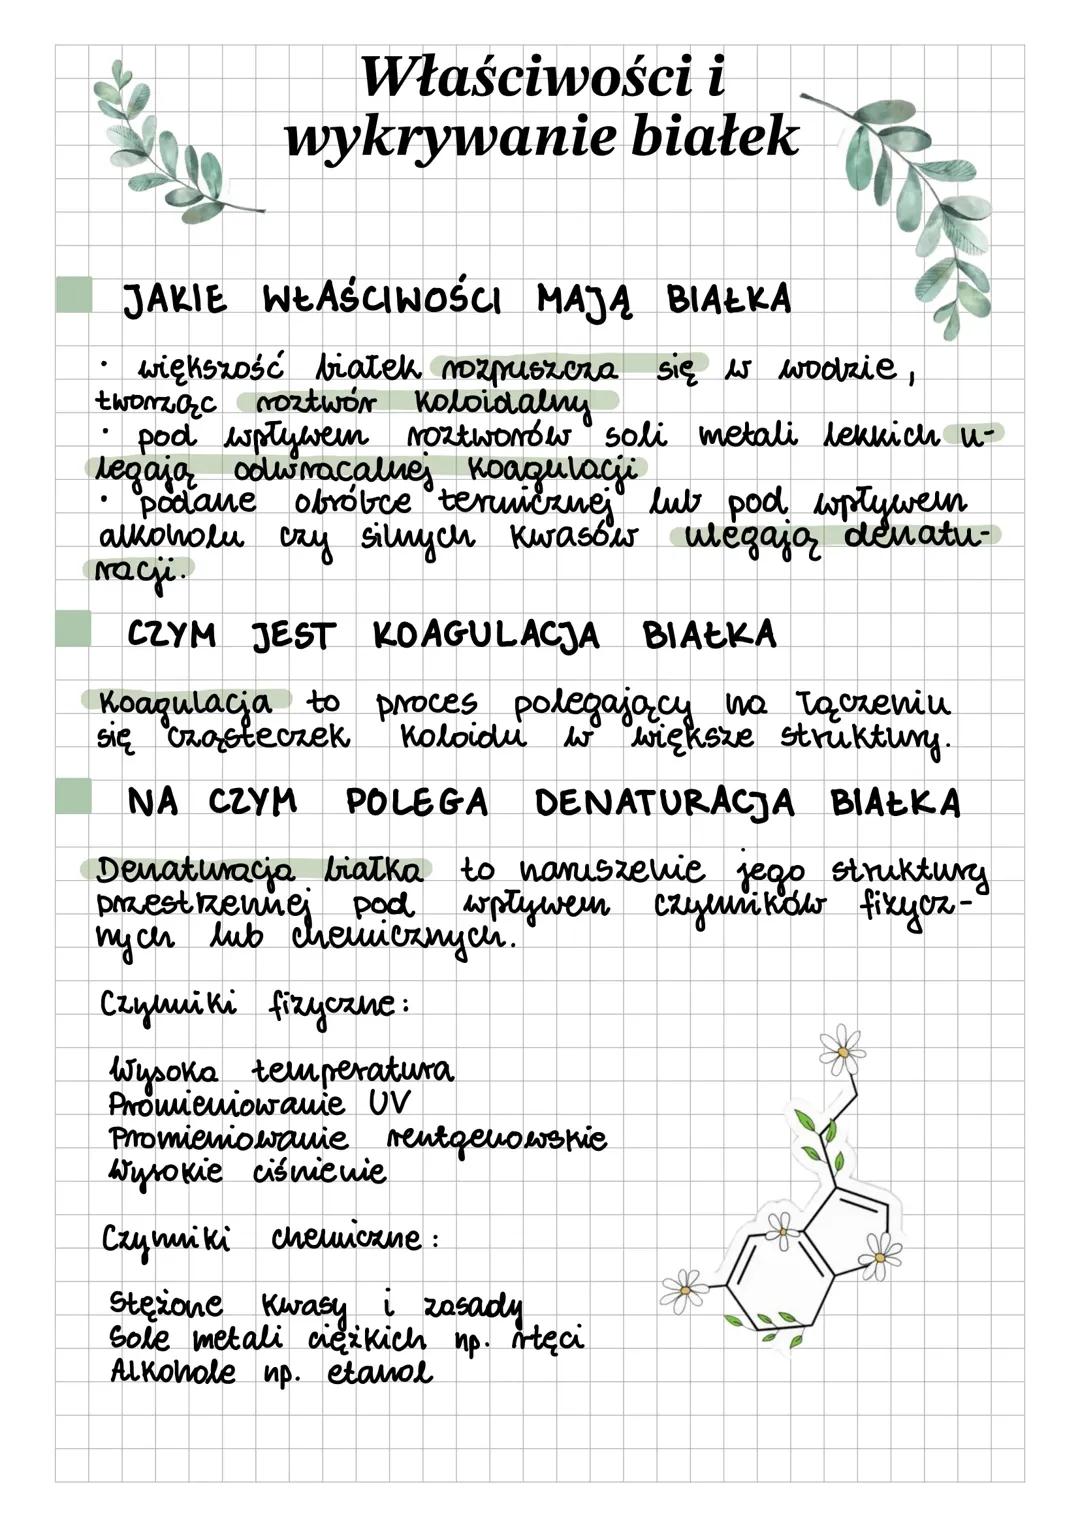 Właściwości i
wykrywanie białek
JAKIE WŁAŚCIWOŚCI MAJĄ BIAŁKA
· większość białek rozpuszcza się w wodzie,
tworząc roztwór koloidalny
· pod wpływem roztworów soli metali lekkich u-
legają odwracalnej koagulacji
· podane obróbce termicznej lub pod wpływem
alkoholu czy silnych kwasów ulegają denatu-
racji.
CZYM JEST KOAGULACJA BIAŁKA
Koagulacja to proces polegający na łączeniu
się cząsteczek koloidu w większe struktury.
NA CZYM POLEGA DENATURACJA BIAŁKA
Denaturacja białka to naruszenie jego struktury
przestrzennej pod wpływem czynników fizycz-
nych lub chemicznych.
Czynniki fizyczne:
Wysoka temperatura
Promieniowanie UV
Promieniowanie rentgenowskie
Wysokie ciśnienie
Czynniki chemiczne:
Stężone kwasy i zasady
Sole metali ciężkich np. rtęci
Alkohole np. etanol